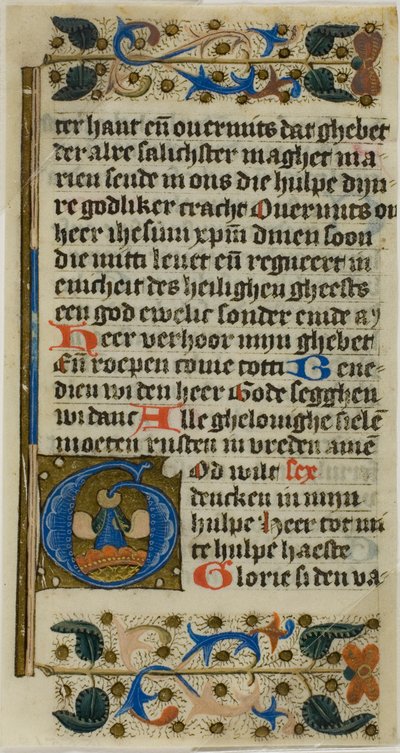 ter hant eñ ouermits dat ghebet
der alre salichster maghet ma
rien sende in ons die hulpe dijn
re godliker cracht Ouermits on
heer ihesum xpm̄ dinen soon
die mitti leuet eñ regneert in
enicheit des heilighen gheests
een god ewelic sonder einde aȳ
Heer verhoor mijn ghebet
Eñ roepen come totti Bene-
dien wi den heer Gode segghen
wi danc Alle ghelouighe sielē
moeten rusten in vreden amē
God wilt sex
dencken in mijn
hulpe Heer tot mi
te hulpe haeste
Glorie si den va-